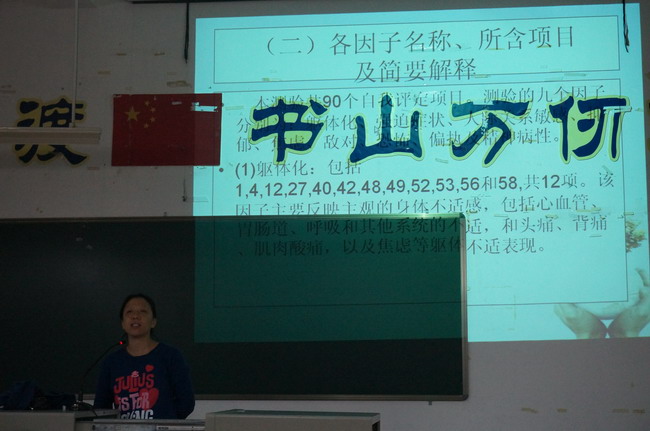 （二）各因子名称、所含项目
及简要解释
渡 书山万仞
本测验共90个自我评定项目。测验的九个因子
分别为：躯体化、强迫症状、人际关系敏感、抑
郁、焦虑、敌对、恐怖、偏执及精神病性。
• (1)躯体化：包括
1,4,12,27,40,42,48,49,52,53,56和58,共12项。该
因子主要反映主观的身体不适感，包括心血管、
胃肠道、呼吸和其他系统的不适，和头痛、背痛
、肌肉酸痛，以及焦虑等躯体不适表现。
JULIUS
IS FOR